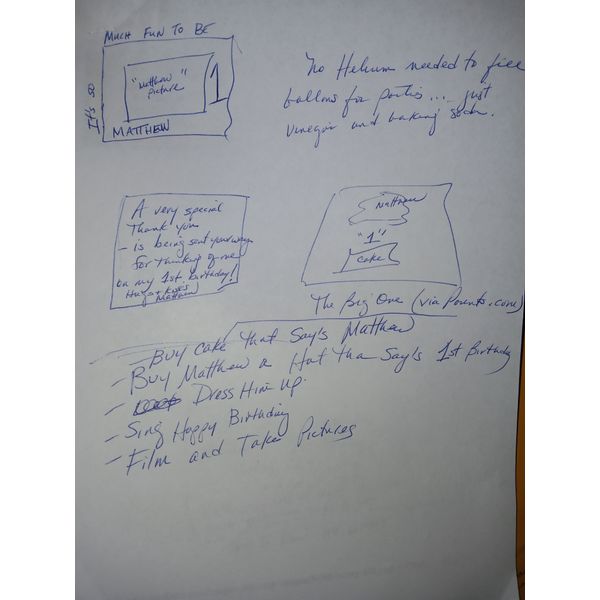 MUCH FUN TO BE
It's so
"Matthew"
picture
1
MATTHEW
No Helium needed to fill
ballons for partis... just
vinegar and baking soda.
A very special
Thank you
- is being sent your way
for thinking of me
on my 1st birthday!
Hugs + Kisses
Matthew
Matthew
"1"
cake
The Big One (via Pounto.com)
- BUY Cake that Say's Matthew
- BUY Matthew a Hat tha Say's 1st Birthday
- Dress Him Up.
- Sing Happy Birthday
- Film and Take Pictures